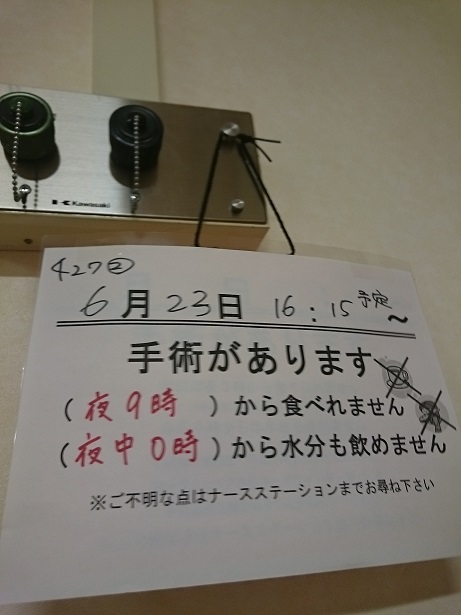 Kawasaki
427②
6月23日 16:15予定~
手術があります
(夜9時)から食べれません
(夜中0時)から水分も飲めません
※ご不明な点はナースステーションまでお尋ね下さい